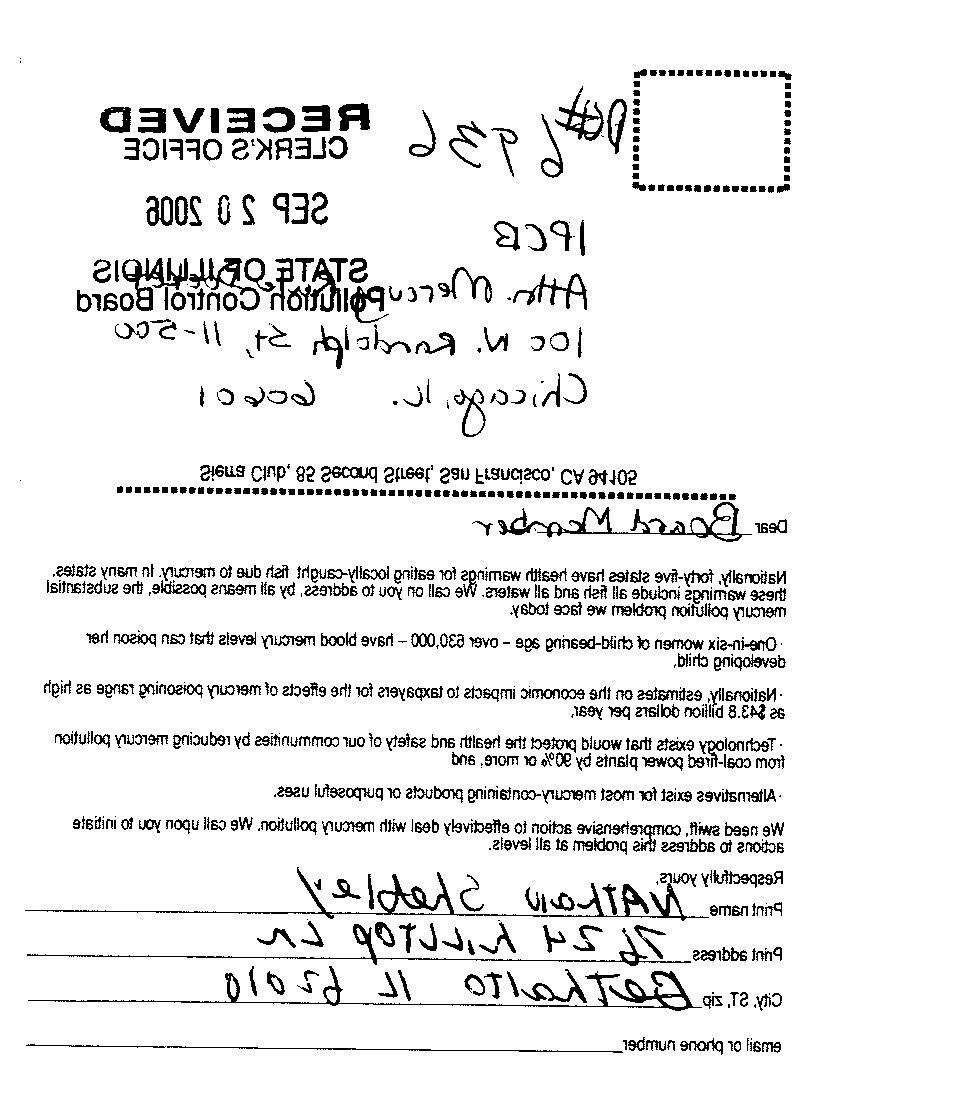 PC# 6936
RECEIVED
CLERK'S OFFICE
SEP 20 2006
STATE OF ILLINOIS
Pollution Control Board
IPCB
Attn. Mercury Rule Docket
100 N. Randolph St, 11-500
Chicago, IL. 60601
Sierra Club, 85 Second Street, San Francisco, CA 94105
Dear Board Member
Nationally, forty-five states have health warnings for eating locally-caught fish due to mercury. In many states,
these warnings include all fish and all waters. We call on you to address, by all means possible, the substantial
mercury pollution problem we face today.
· One-in-six women of child-bearing age – over 630,000 – have blood mercury levels that can poison her
developing child,
· Nationally, estimates on the economic impacts to taxpayers for the effects of mercury poisoning range as high
as $43.8 billion dollars per year,
· Technology exists that would protect the health and safety of our communities by reducing mercury pollution
from coal-fired power plants by 90% or more, and
· Alternatives exist for most mercury-containing products or purposeful uses.
We need swift, comprehensive action to effectively deal with mercury pollution. We call upon you to initiate
actions to address this problem at all levels.
Respectfully yours,
Print name NATHAN Shebley
Print address 7624 hiLLTOP LN
City, ST, zip BeThalTO IL 62010
email or phone number